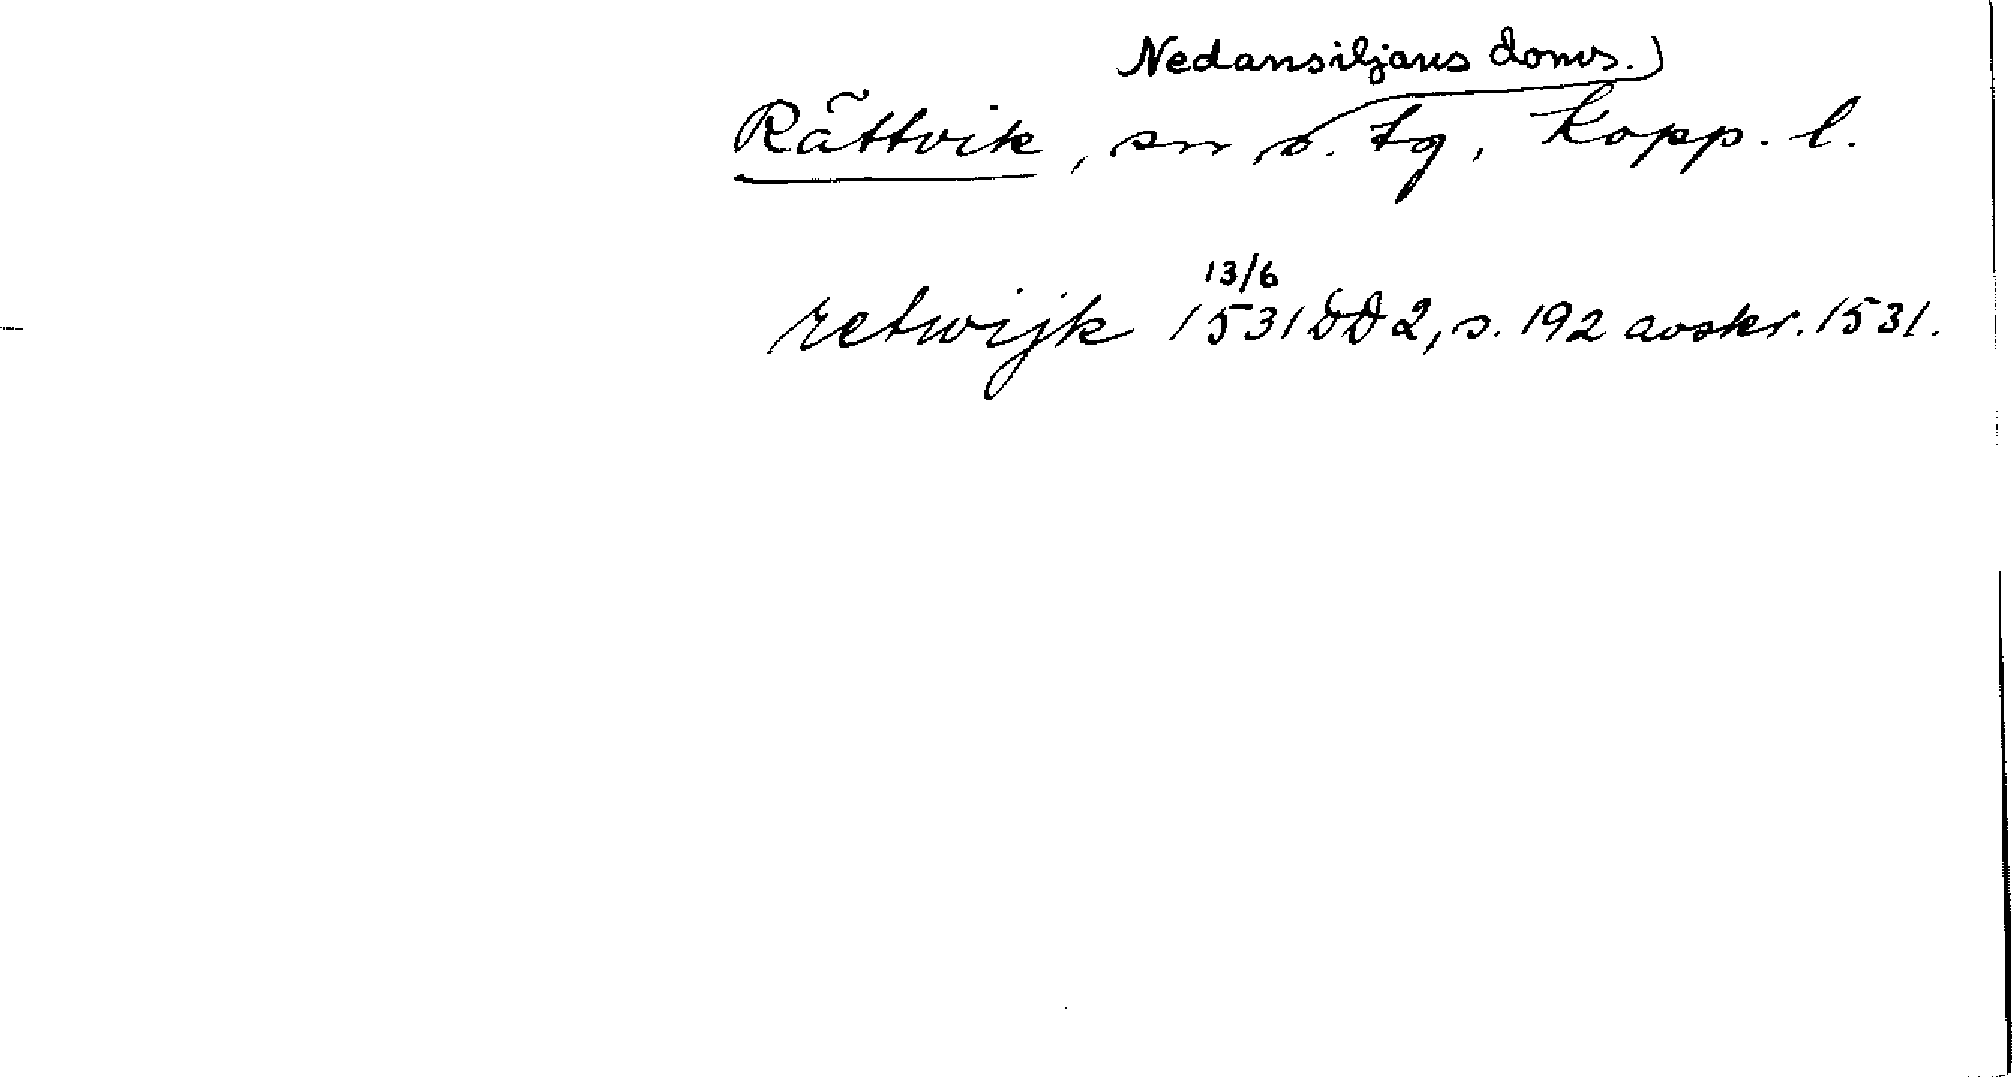 Nedansiljans doms.)
Rättvik, sn o. tg, Kopp. l.
13/6
retwijk 1531 DD 2, s. 192 avskr. 1531.